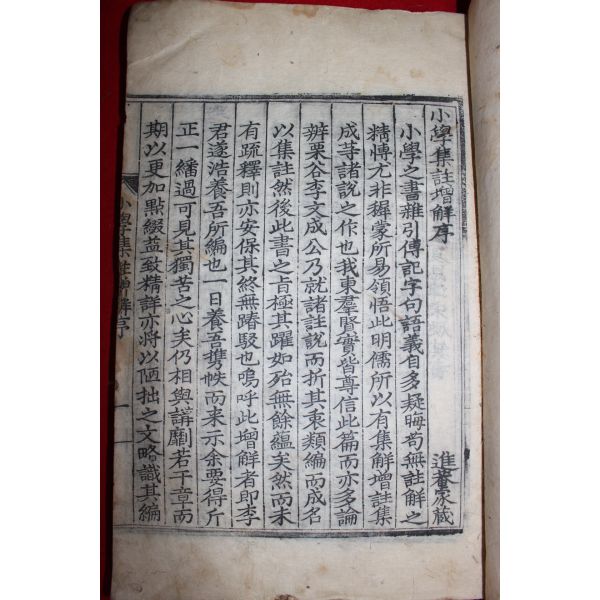 小學集註增解序 進菴家藏
小學之書雜引傳記字句語義自多疑晦苟無註解之
精博尤非穉蒙所易領悟此明儒所以有集解增註集
成等諸說之作也我東羣賢實皆尊信此篇而亦多論
辨栗谷李文成公乃就諸註說而折其衷類編而成名
以集註然後此書之旨極其躍如殆無餘蘊矣然而未
有疏釋則亦安保其終無踳駁也嗚呼此增解者即李
君遂浩養吾所編也一日養吾携帙而来示余要得斤
正一繙過可見其獨苦之心矣仍相與講劘若干章而
期以更加點綴益致精詳亦將以陋拙之文略識其編
小學集註增解序 一